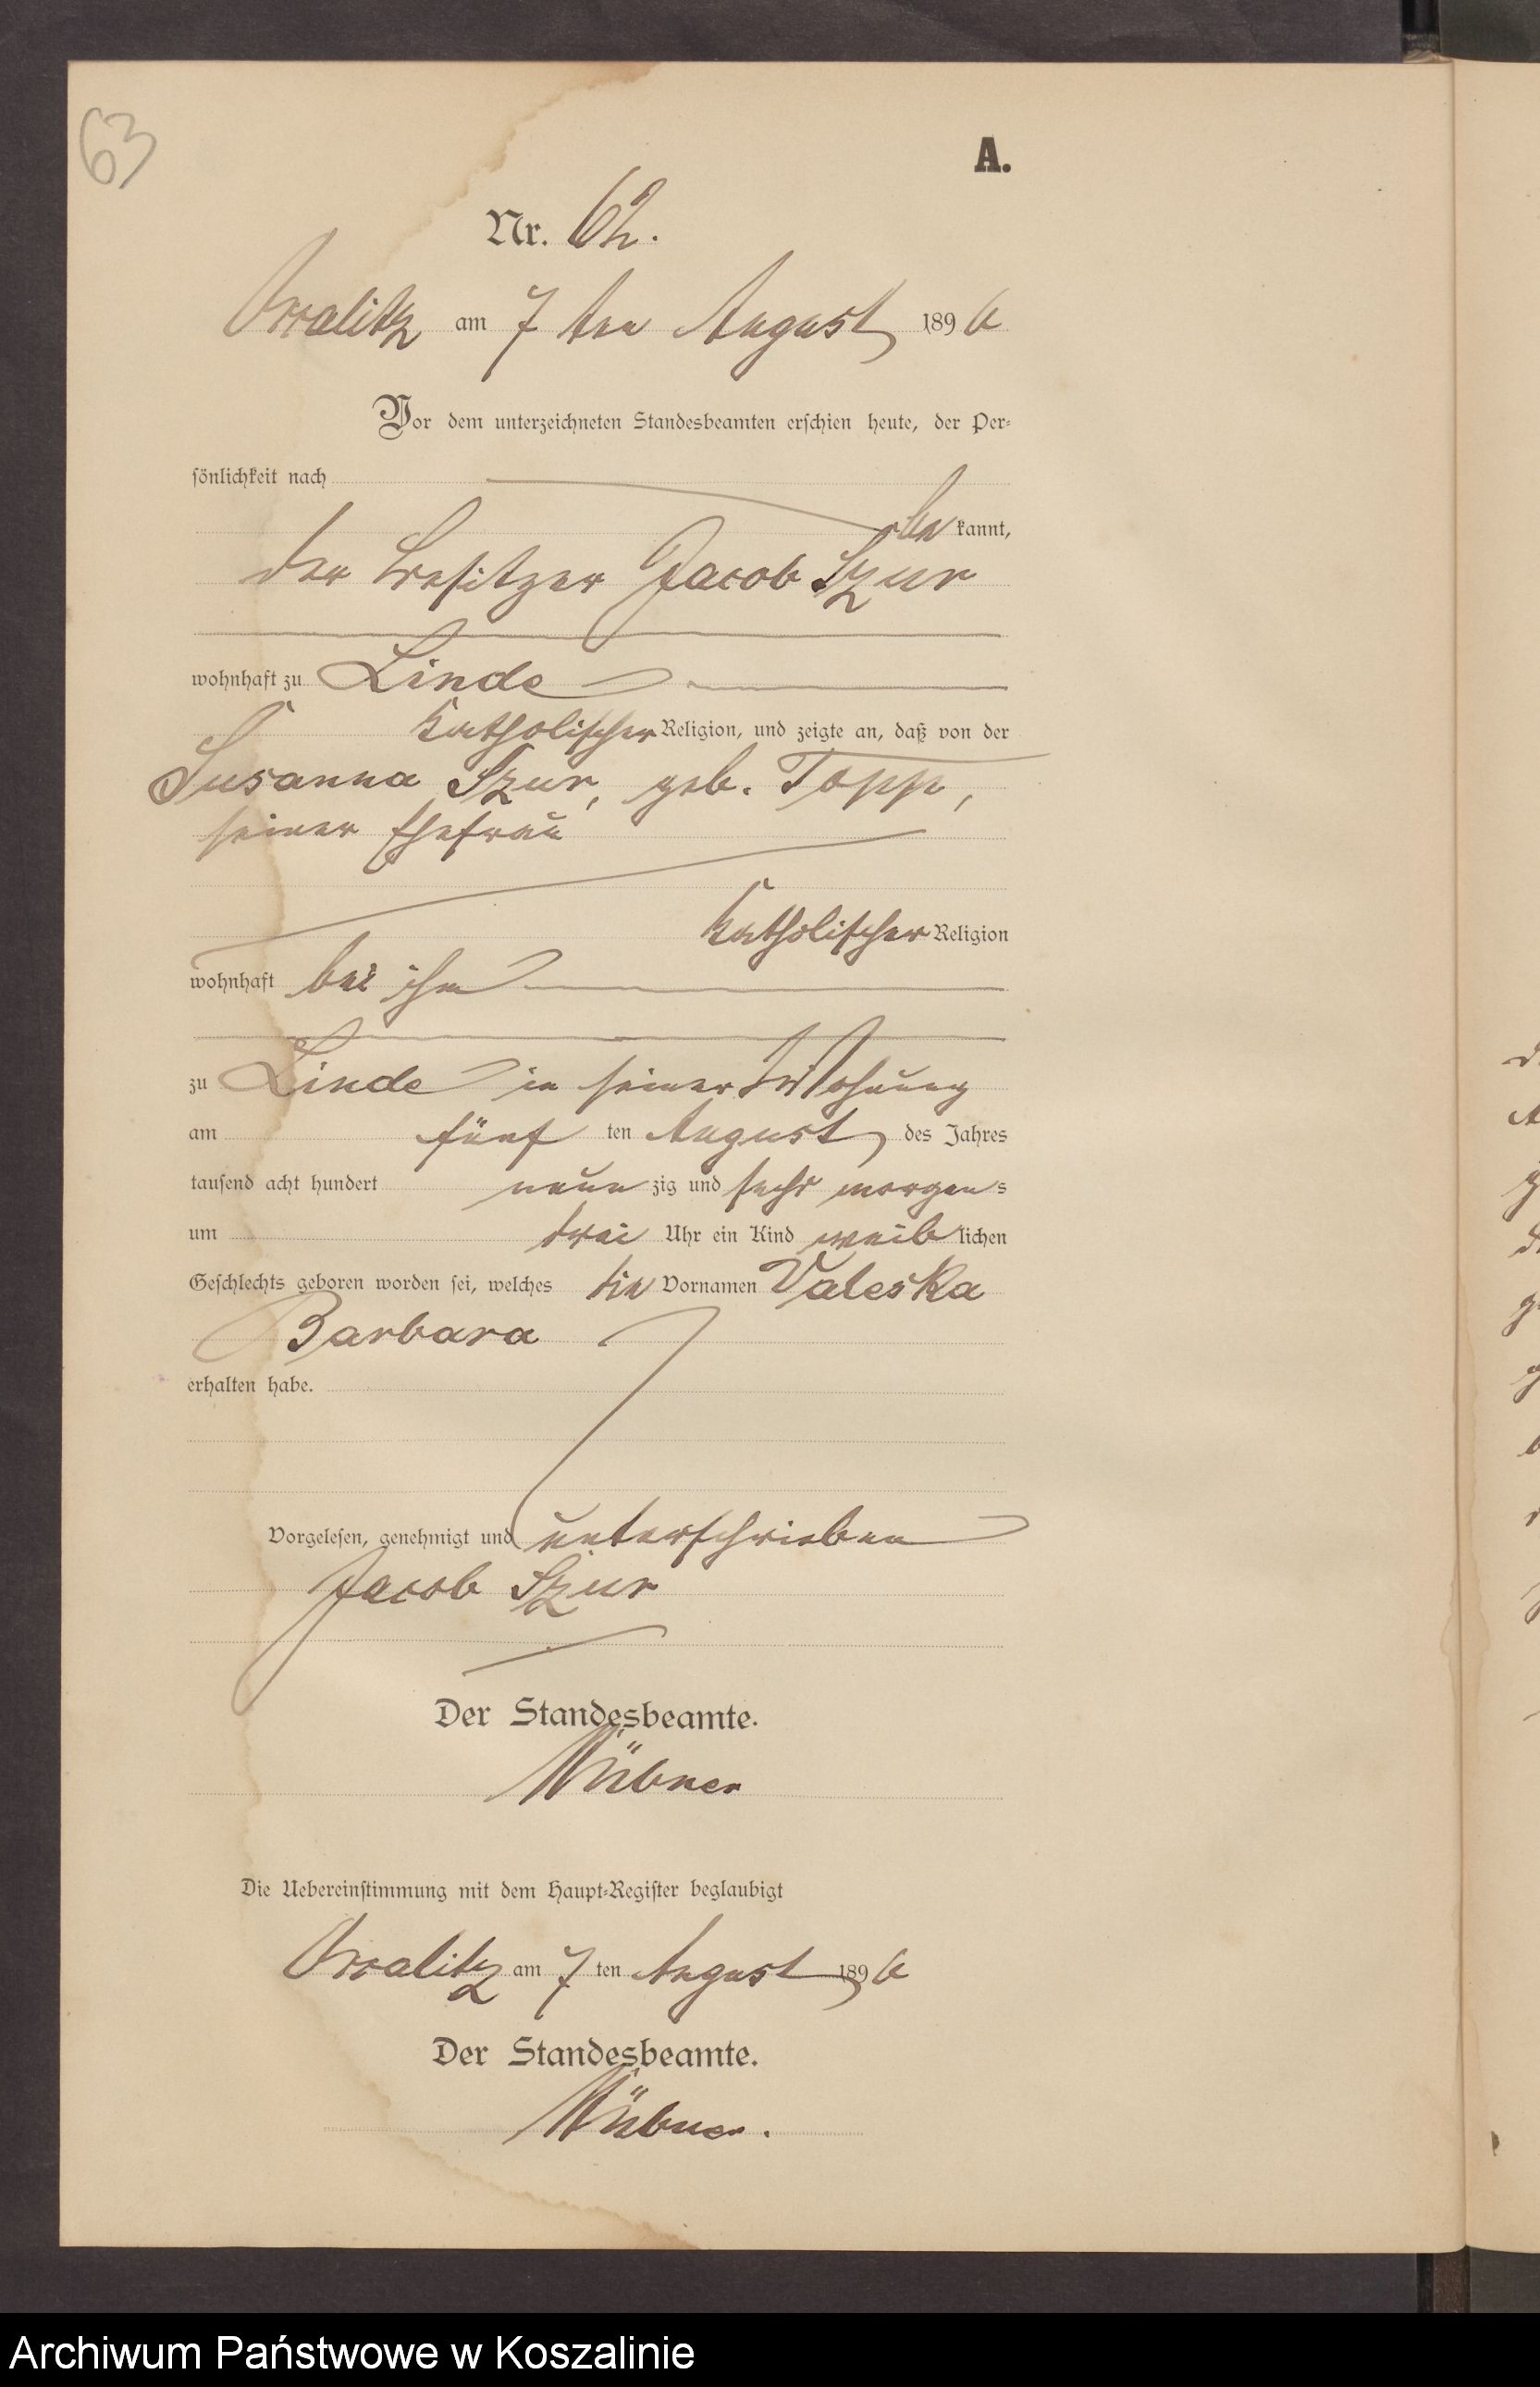 63
A.
Nr. 62.
am 7 ten August 1896
Vor dem unterzeichneten Standesbeamten erschien heute, der Per-
sönlichkeit nach
be kannt,
der Besitzer Jacob Szur
wohnhaft zu Linde
katholischer Religion, und zeigte an, daß von der
Susanna Szur, geb. Topp,
seiner Ehefrau
katholischer Religion
wohnhaft bei ihm
zu Linde in seiner Wohnung
am fünf ten August des Jahres
tausend acht hundert neun zig und sechs morgens
um drei Uhr ein Kind weib lichen
Geschlechts geboren worden sei, welches die Vornamen Valeska
Barbara
erhalten habe.
Vorgelesen, genehmigt und unterschrieben
Jacob Szur
Der Standesbeamte.
Die Uebereinstimmung mit dem Haupt-Register beglaubigt
am 7 ten August 1896
Der Standesbeamte.
Archiwum Państwowe w Koszalinie